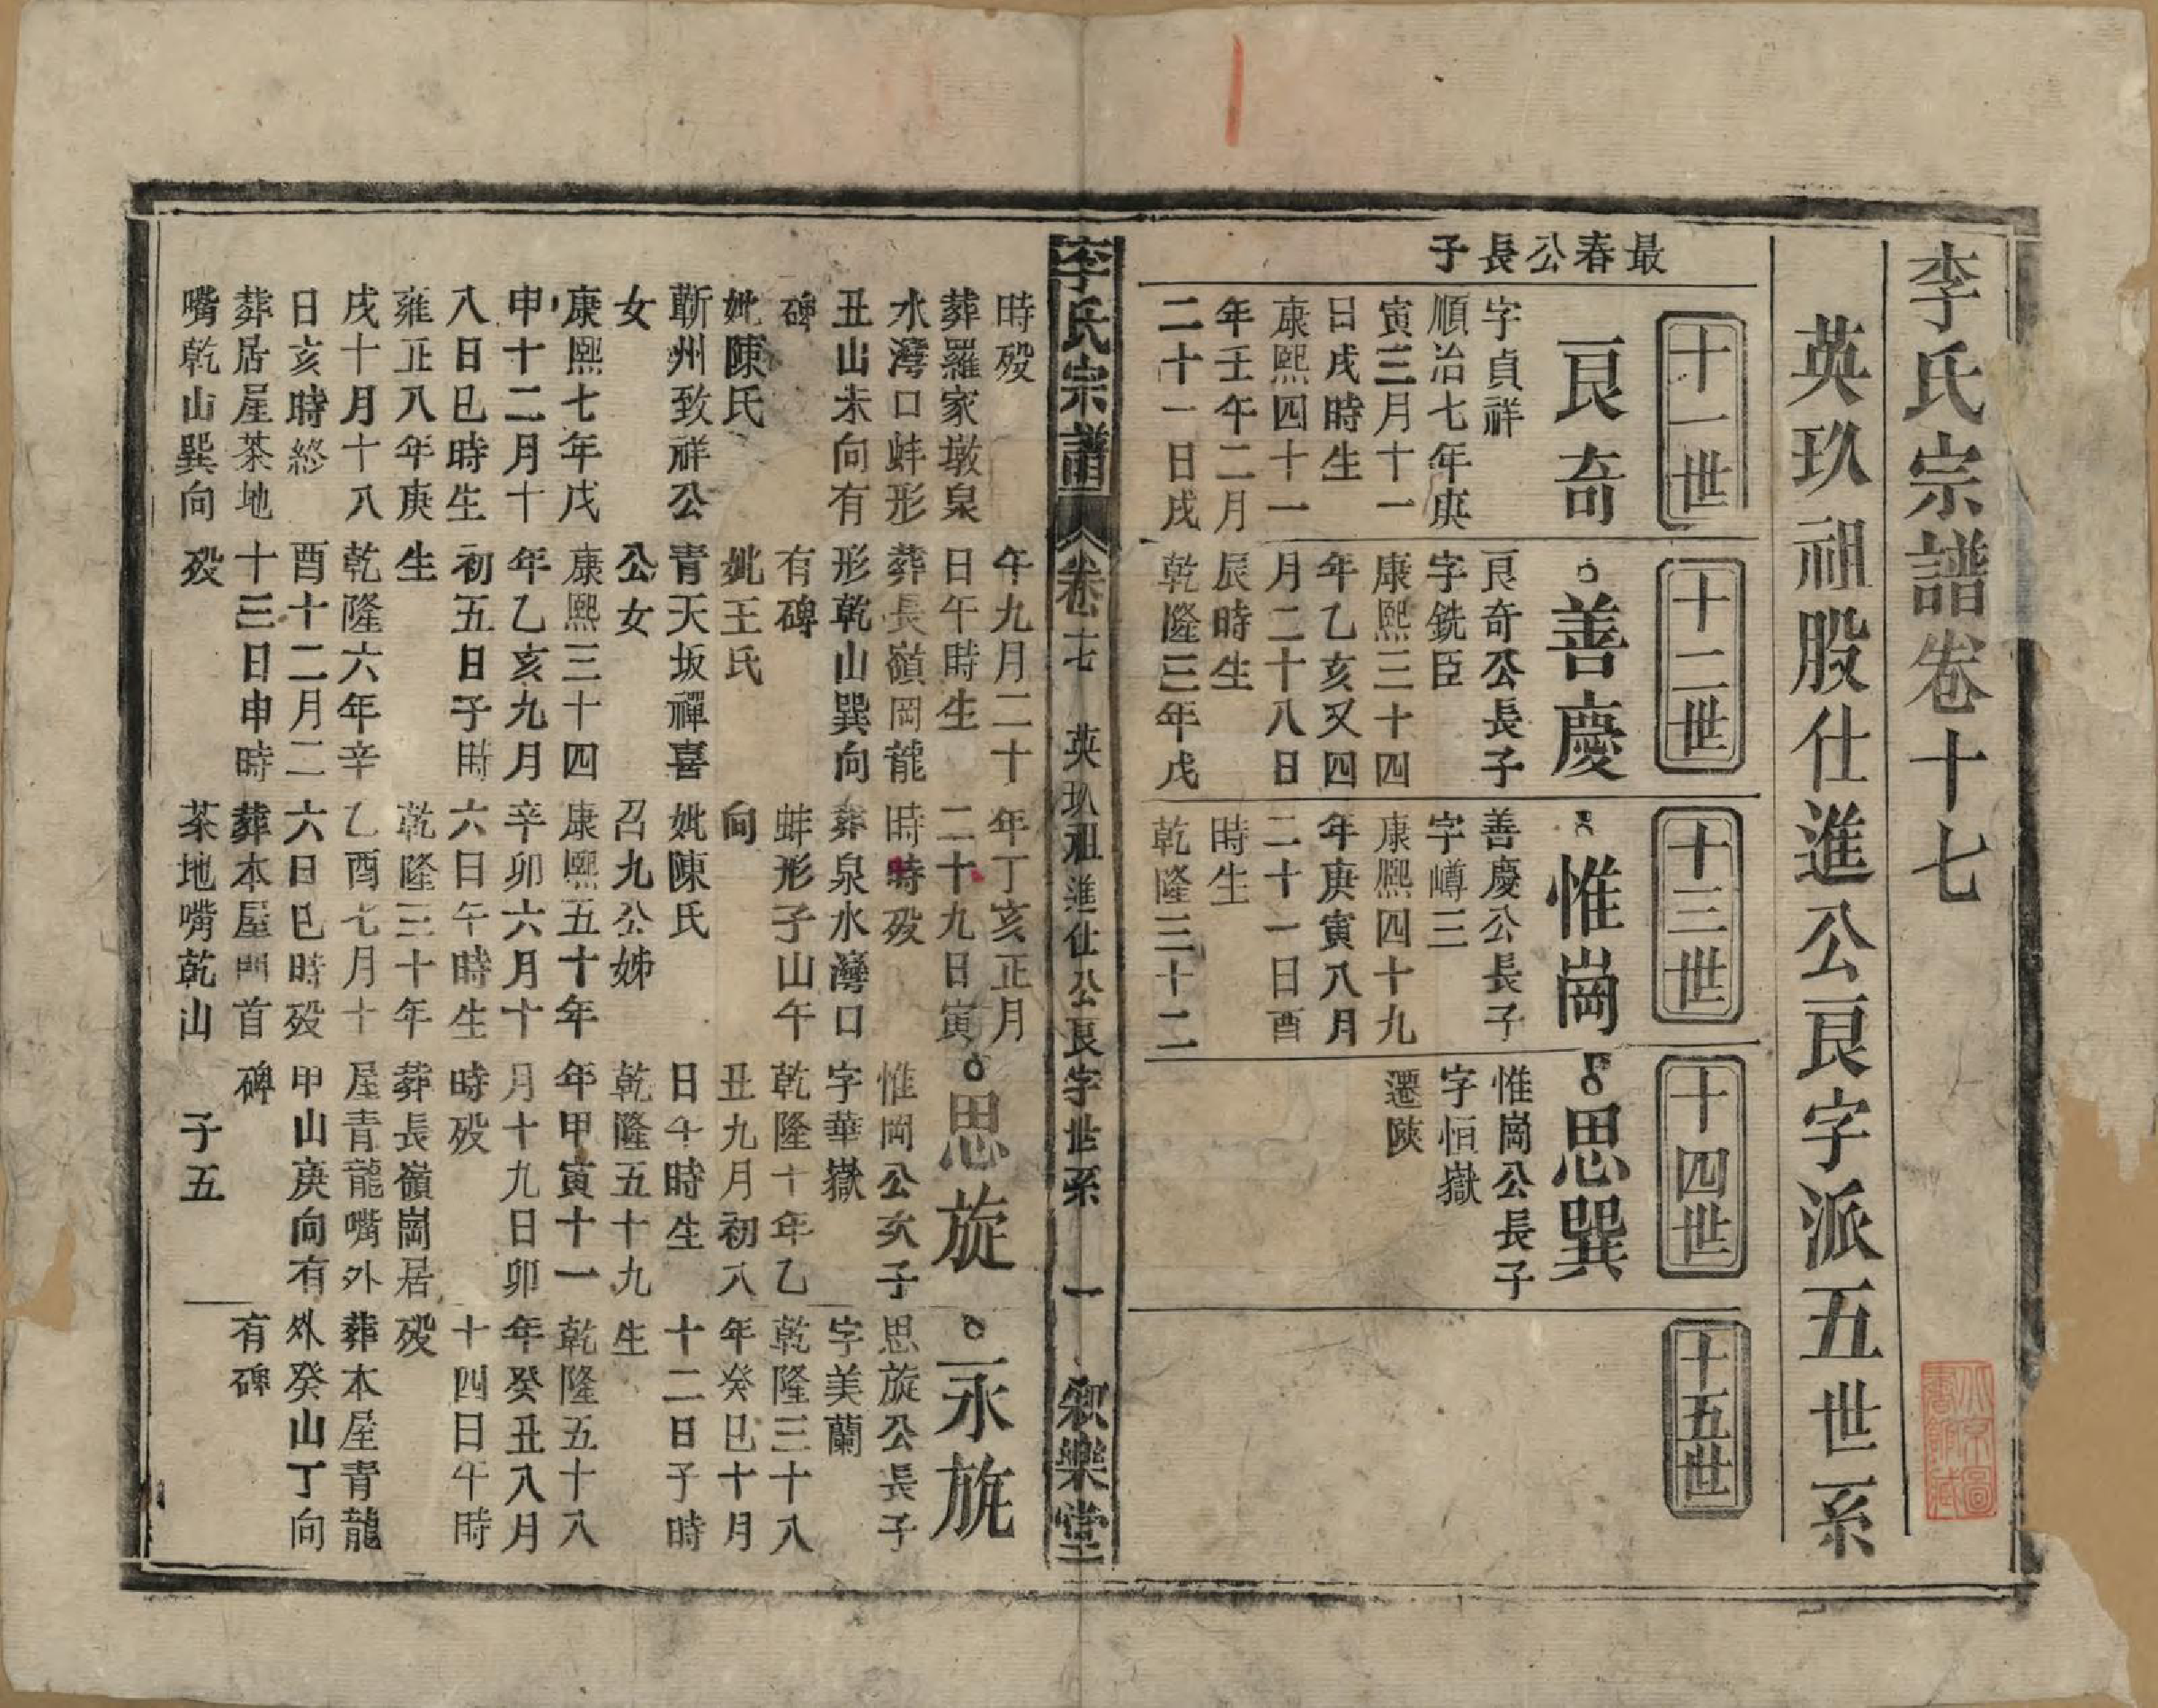 李氏宗譜卷十七
英玖祖股仕進公艮字派五世系
十一世
十二世
十三世
十四世
十五世
最春公長子
艮奇
字貞祥
順治七年庚
寅三月十一
日戌時生
康熙四十一
年壬午二月
二十一日戌
善慶
艮奇公長子
字銑臣
康熙三十四
年乙亥又四
月二十八日
辰時生
乾隆三年戊
惟崗
善慶公長子
字嶟三
康熙四十九
年庚寅八月
二十一日酉
時生
乾隆三十二
思巽
惟崗公長子
字恒嶽
遷陝
李氏宗譜
卷十七
英玖祖進仕公艮字世系
一
敘樂堂
時殁
葬羅家墩泉
水灣口蚌形
丑山未向有
碑
妣陳氏
蘄州致祥公
女
康熙七年戊
申十二月十
八日巳時生
雍正八年庚
戌十月十八
日亥時終
葬居屋茶地
嘴乾山巽向
午九月二十
日午時生
葬長嶺岡龍
形乾山巽向
有碑
妣王氏
青天坂禪喜
公女
康熙三十四
年乙亥九月
初五日子時
生
乾隆六年辛
酉十二月二
十三日申時
殁
年丁亥正月
二十九日寅
時時殁
葬泉水灣口
蚌形子山午
向
妣陳氏
召九公姊
康熙五十年
辛卯六月十
六日午時生
乾隆三十年
乙酉七月十
六日巳時殁
葬本屋門首
茶地嘴乾山
思旋
惟岡公次子
字華嶽
乾隆十年乙
丑九月初八
日午時生
乾隆五十九
年甲寅十一
月十九日卯
時殁
葬長嶺崗居
屋青龍嘴外
甲山庚向有
碑
子五
永旂
思旋公長子
字美蘭
乾隆三十八
年癸巳十月
十二日子時
生
乾隆五十八
年癸丑八月
十四日午時
殁
葬本屋青龍
外癸山丁向
有碑